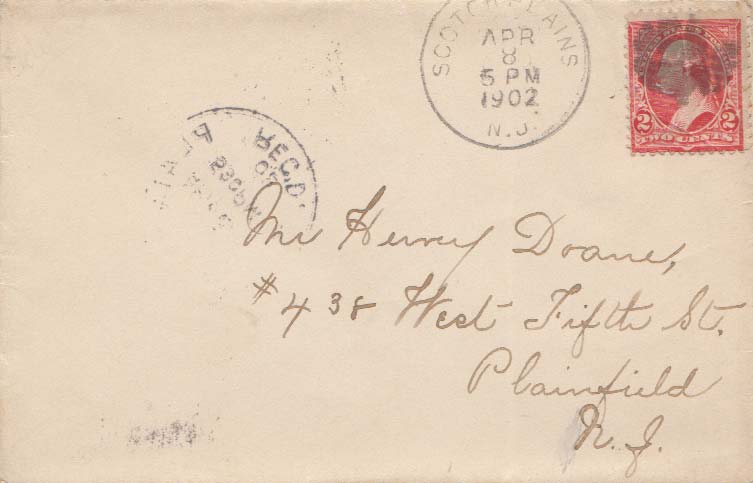 SCOTCH PLAINS
APR
8
5 PM
1902
N.J.
2 2
TWO CENTS
REC'D.
Mr Henry Doane,
#438 West Fifth St.
Plainfield
N.J.